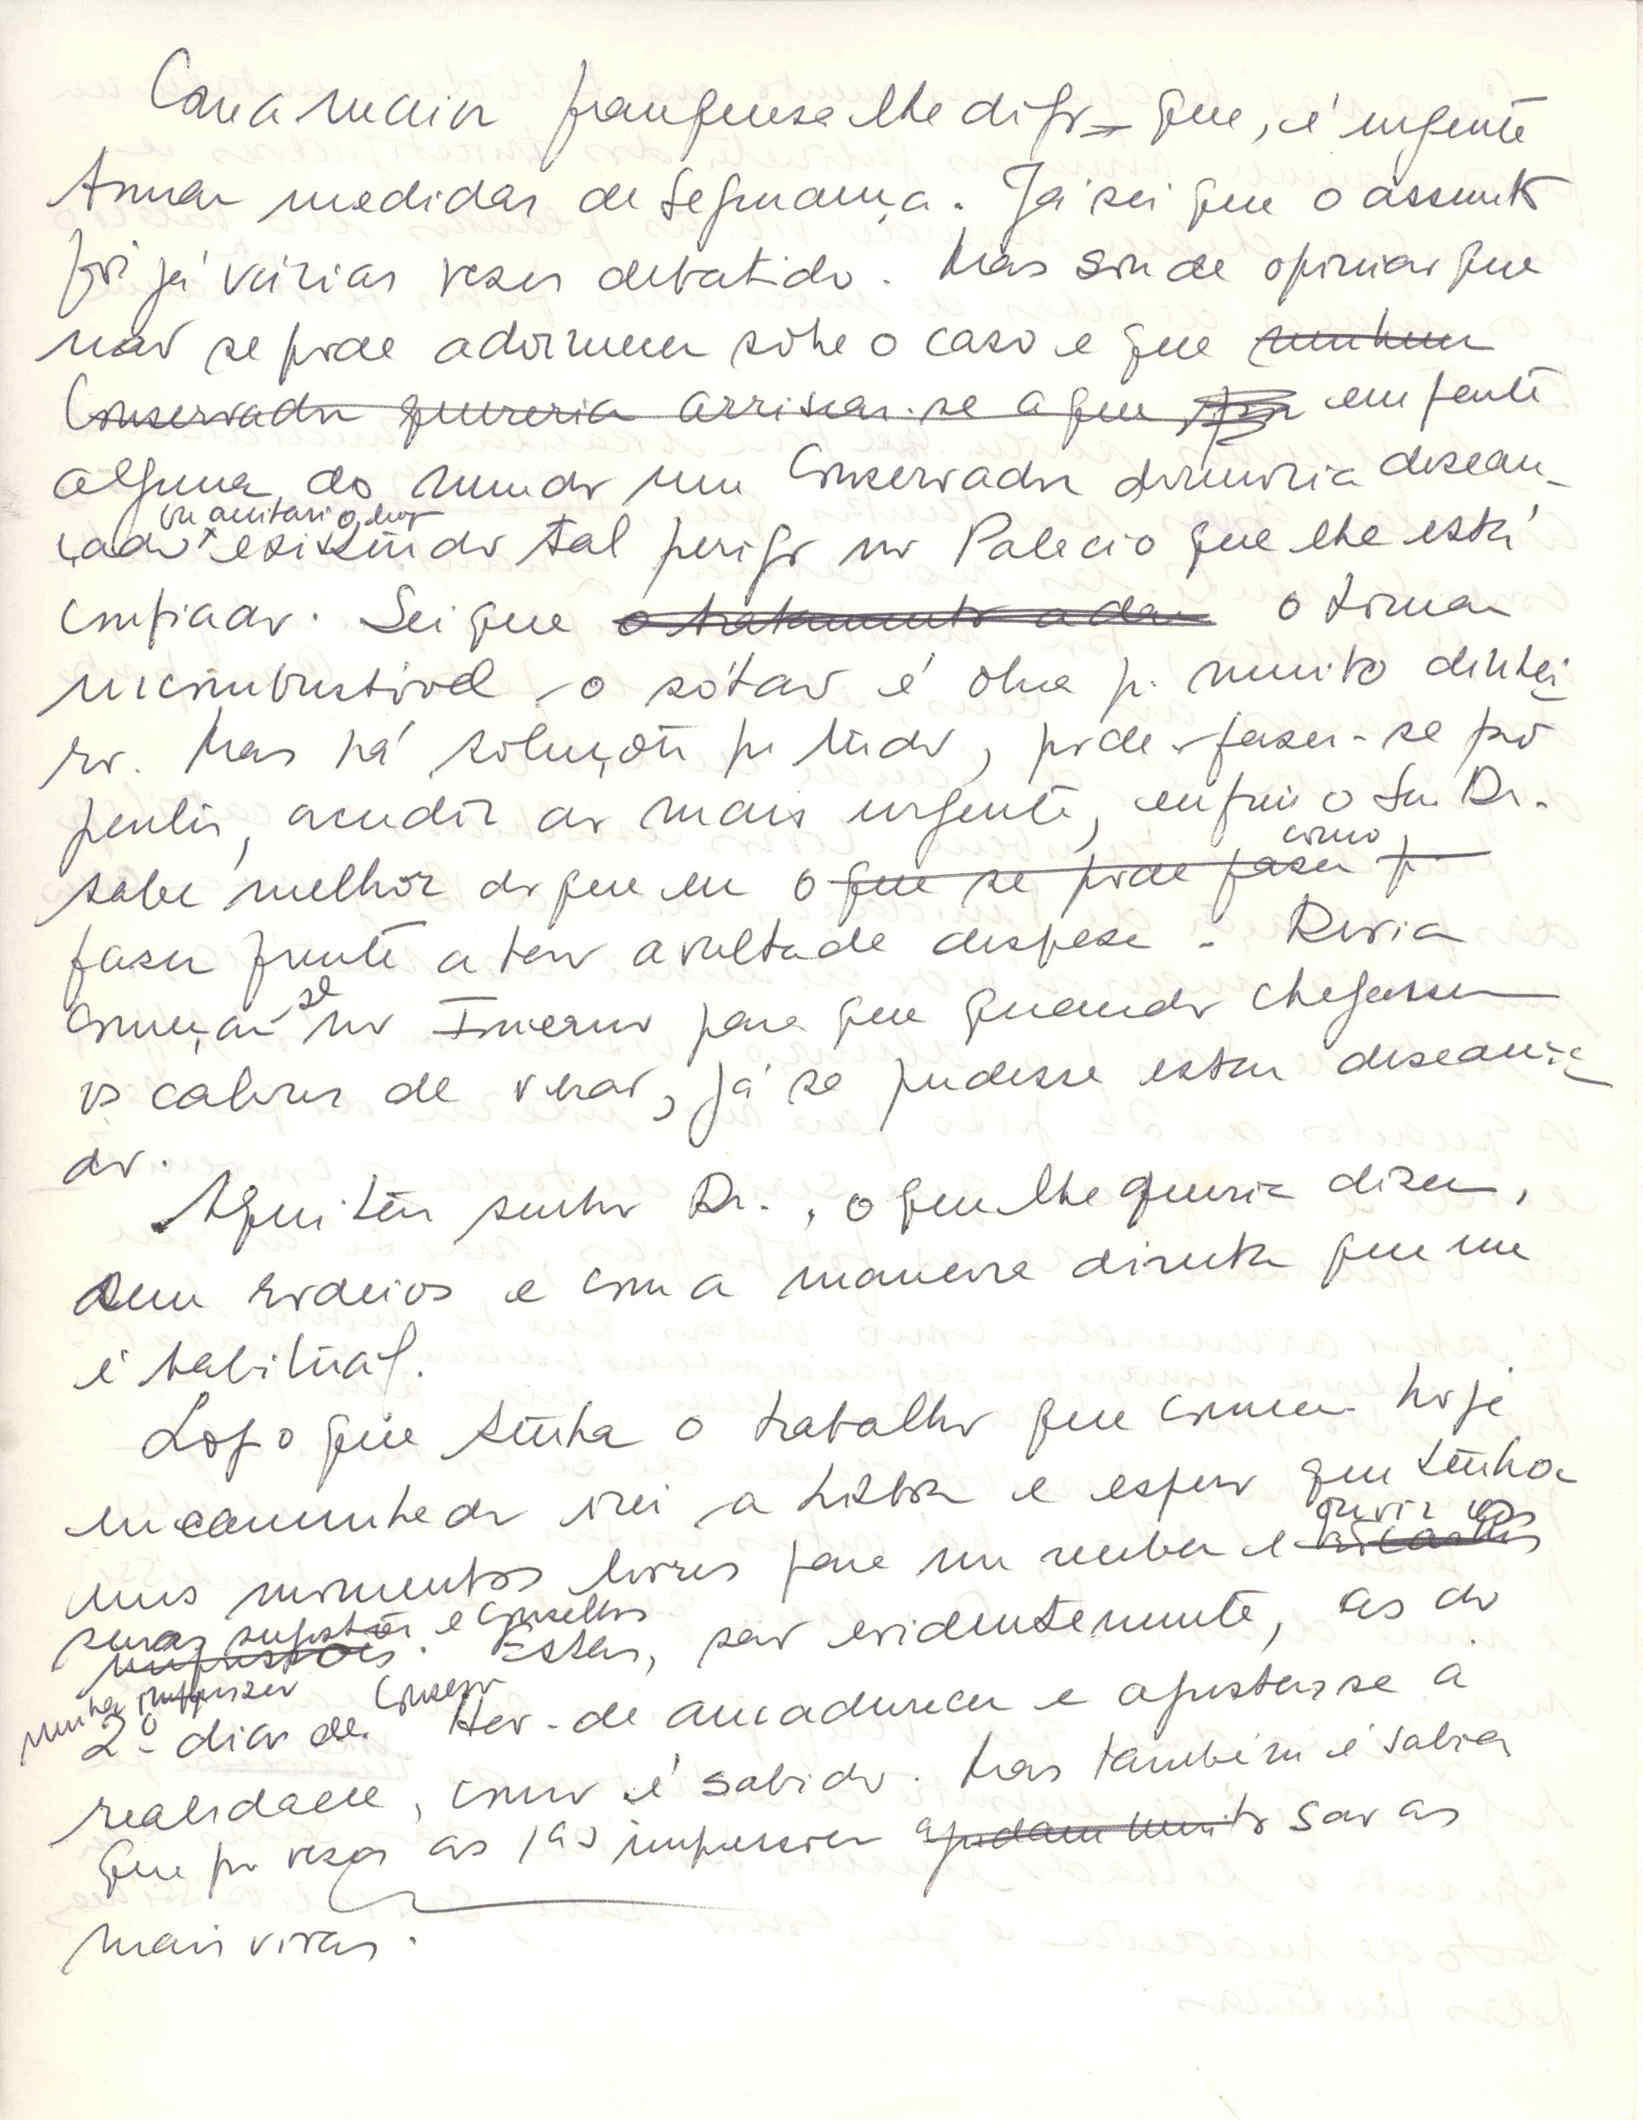 Com a maior franqueza lhe digo que, é urgente
tomar medidas de segurança. Já sei que o assunto
foi já várias vezes debatido. Mas sou de opinião que
não se pode adormecer sobre o caso e que nenhum
Conservador quereria arriscar-se a que em parte
alguma do mundo um Conservador dormiria descan-
ou aceitaria
çado existindo tal perigo no Palacio que lhe está
confiado. Sei que o tratamento a dar o tornar
incombustivel o sótão é obra p. muito dinhei-
ro. Mas há soluções p. tudo, pode fazer-se por
partes, acudir ao mais urgente, enfim o Snr. Dr.
como
sabe melhor do que eu o que se pode fazer p.
fazer frente a tão avultada despesa. Devia
se
começar no Inverno para que quando chegassem
os calores de verão, já se pudesse estar descança
do.
Aqui tem senhor Dr., o que lhe queria dizer,
sem rodeios e com a maneira directa que me
é habitual.
Logo que tenha o trabalho que começa hoje
encaminhado irei a Lisboa e espero que tenha
ouvir as
uns momentos livres para me receber e
suas sugestões e conselhos
sugestões. Estas, são evidentemente, as do
minha impressão
Conservar
2º dia de. Hão-de amadurecer e ajustar-se à
realidade, como é sabido. Mas também é sabido
que por vezes as 1as impressões ajudam muito são as
mais vivas.